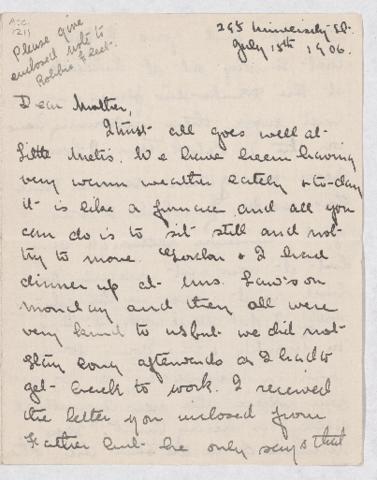 Please give
enclosed note to
Robbie & Lect.
295 University St.
July 15th 1906.
Dear Mother,
I trust all goes well at
Little Metis. We have been having
very warm weather lately & to-day
it is like a furnace and all you
can do is to sit still and not
try to move. Gordon & I had
dinner up at Mrs. Law's on
Monday and they all were
very kind to us but we did not
stay long afterwards as I had to
get back to work. I received
the letter you inclosed from
Father but he only says that